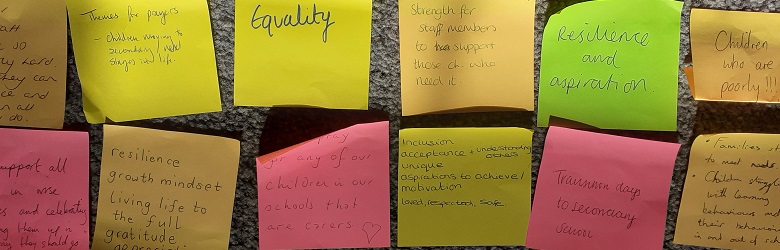 so
ty hard
they can
ce and
n all
do.
Themes for prayers
- Children moving to
secondary / next
stages in life.
Equality
Strength for
staff members
to support
those ch. who
need it.
Resilience
and
aspiration
Children
who are
poorly!!!
support all
in
s and celebrating
they should go
resilience
growth mindset
Living life to
the full
gratitude
pray
for any of our
children in our
schools that
are carers
inclusion
acceptance + understanding
others
unique
aspirations to achieve/
motivation
loved, respected, safe
Transition days
to secondary
school
• Families
to meet needs
• Children
with learning
behaviours and
their behaviour
in and out of